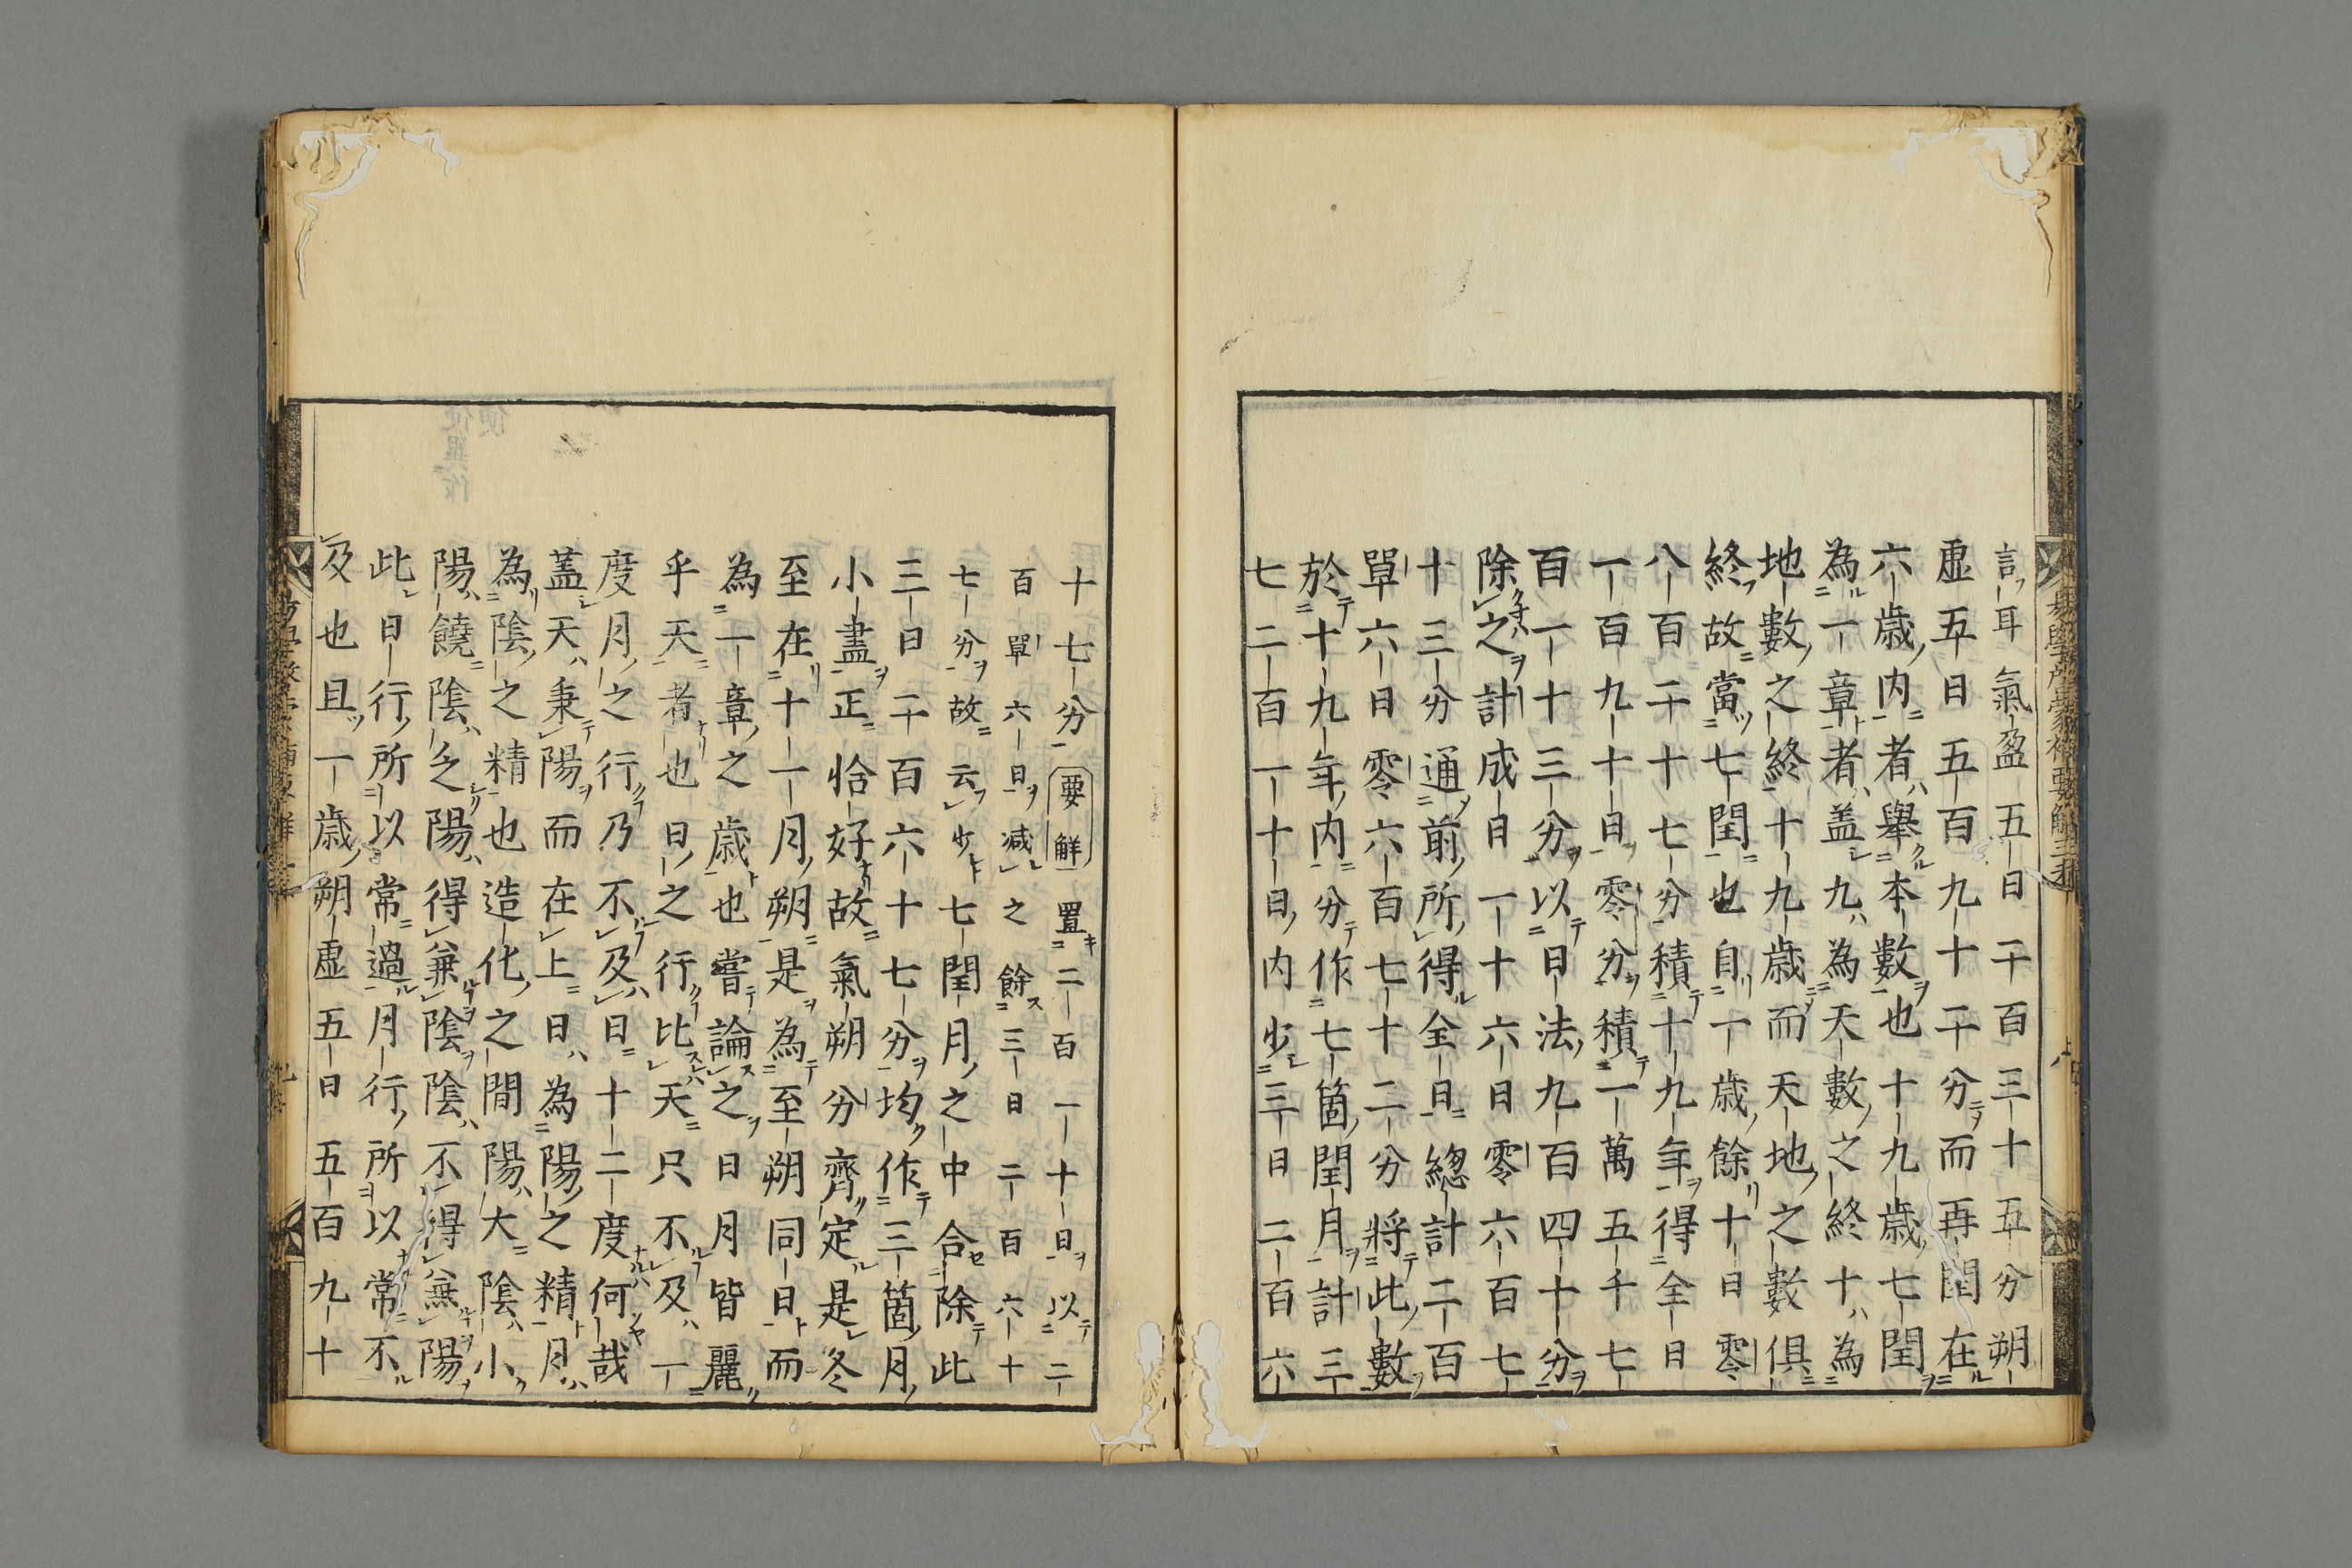 言耳氣盈五日二百三十五分朔
虛五日五百九十二分而再閏在
六歳内者舉本數也十九歳七閏
為一章者盖九為天數之終十為
地數之終十九歳而天地之數俱
終故當七閏也自一歳餘十日零
八百二十七分積十九年得全日
一百九十日零分積一萬五千七
百一十三分以日法九百四十分
除之計成日一十六日零六百七
十三分通前所得全日總計二百
單六日零六百七十二分將此數
於十九年内分作七箇閏月計三
七二百一十日内少三日二百六
十七分要解置二百一十日以二
百單六日減之餘三日二百六十
七分故云少七閏月之中合除此
三日二百六十七分均作三箇月
小盡正恰好故氣朔分齊定是冬
至在十一月朔是為至朔同日而
為一章之歳也嘗論之日月皆麗
乎天者也日之行比天只不及一
度月之行乃不及日十二度何哉
盖天秉陽而在上日為陽之精月
為陰之精也造化之間陽大陰小
陽饒陰乏陽得兼陰陰不得兼陽
此日行所以常過月行所以常不
及也且一歳朔虛五日五百九十